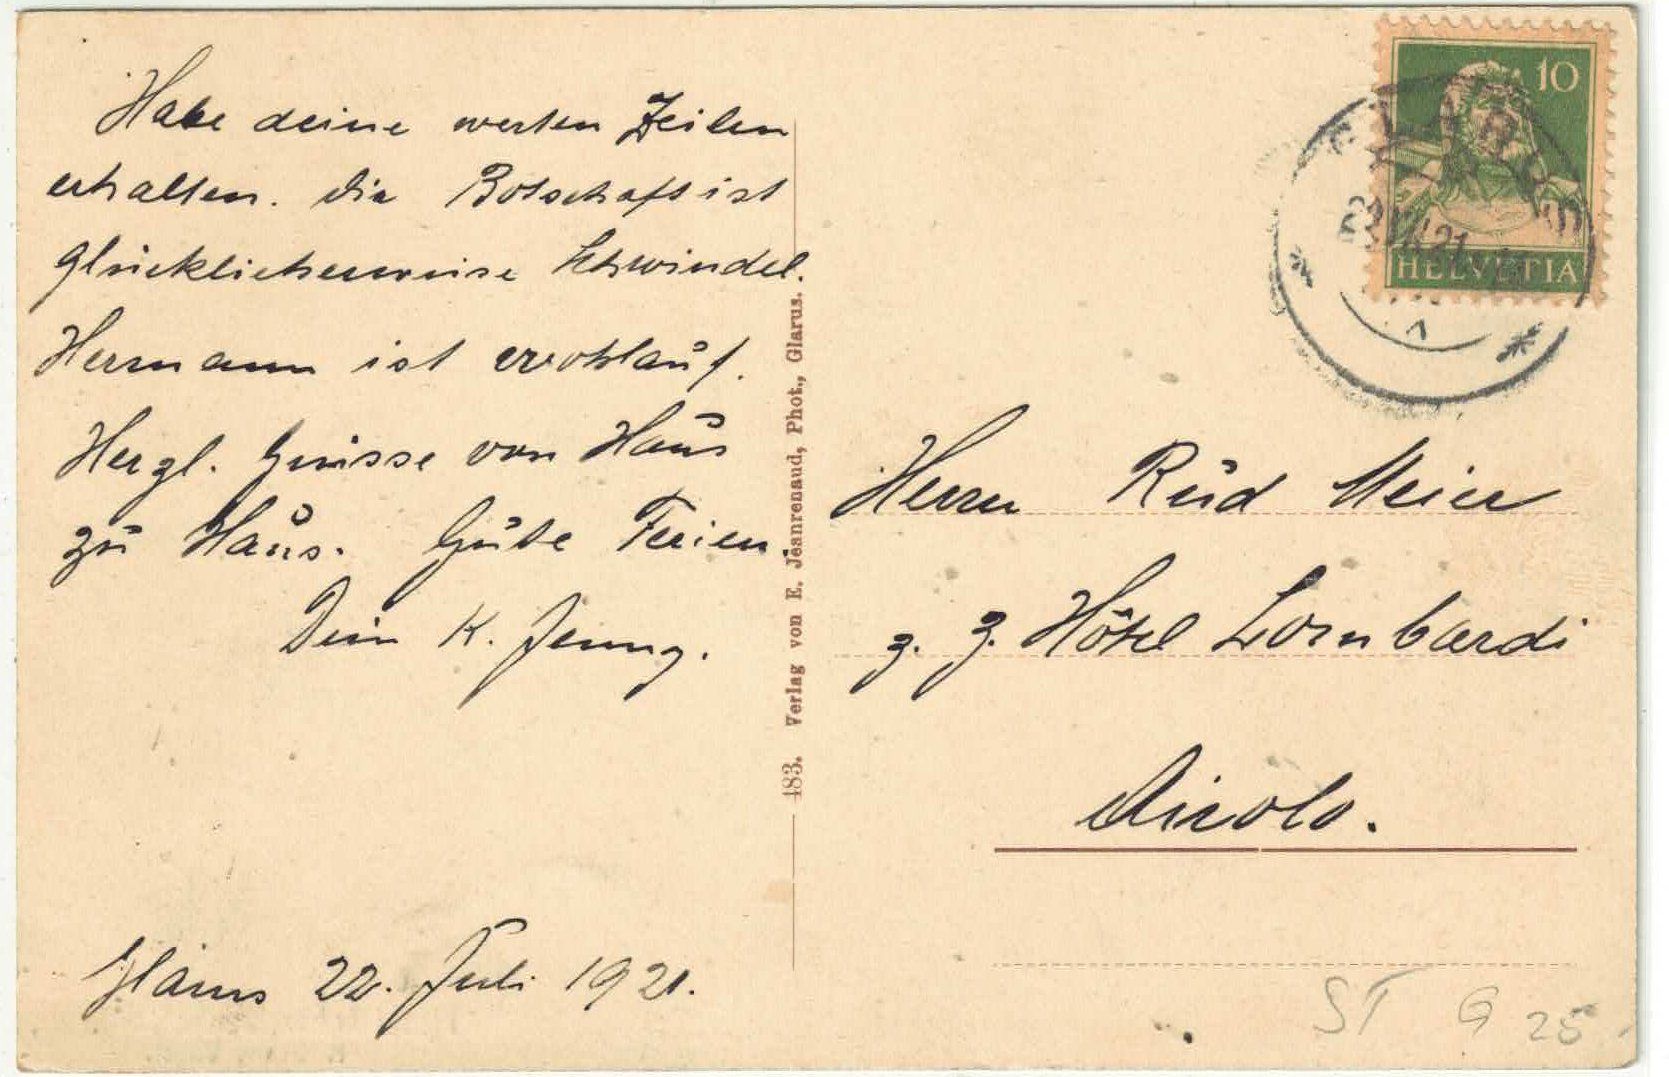 Habe deine werten Zeilen
erhalten. Die Botschaft ist
glücklicherweise Schwindel.
Hermann ist wohlauf.
Herzl. Grüsse von Haus
zu Haus. Gute Ferien.
Dein K. Jenny.
Glarus 22. Juli 1921.
483. Verlag von E. Jeanrenaud, Phot., Glarus.
10
HELVETIA
GLARUS
VII.21
1
Herrn Rud Meier
z. Z. Hôtel Lombardi
Airolo.
ST G 25